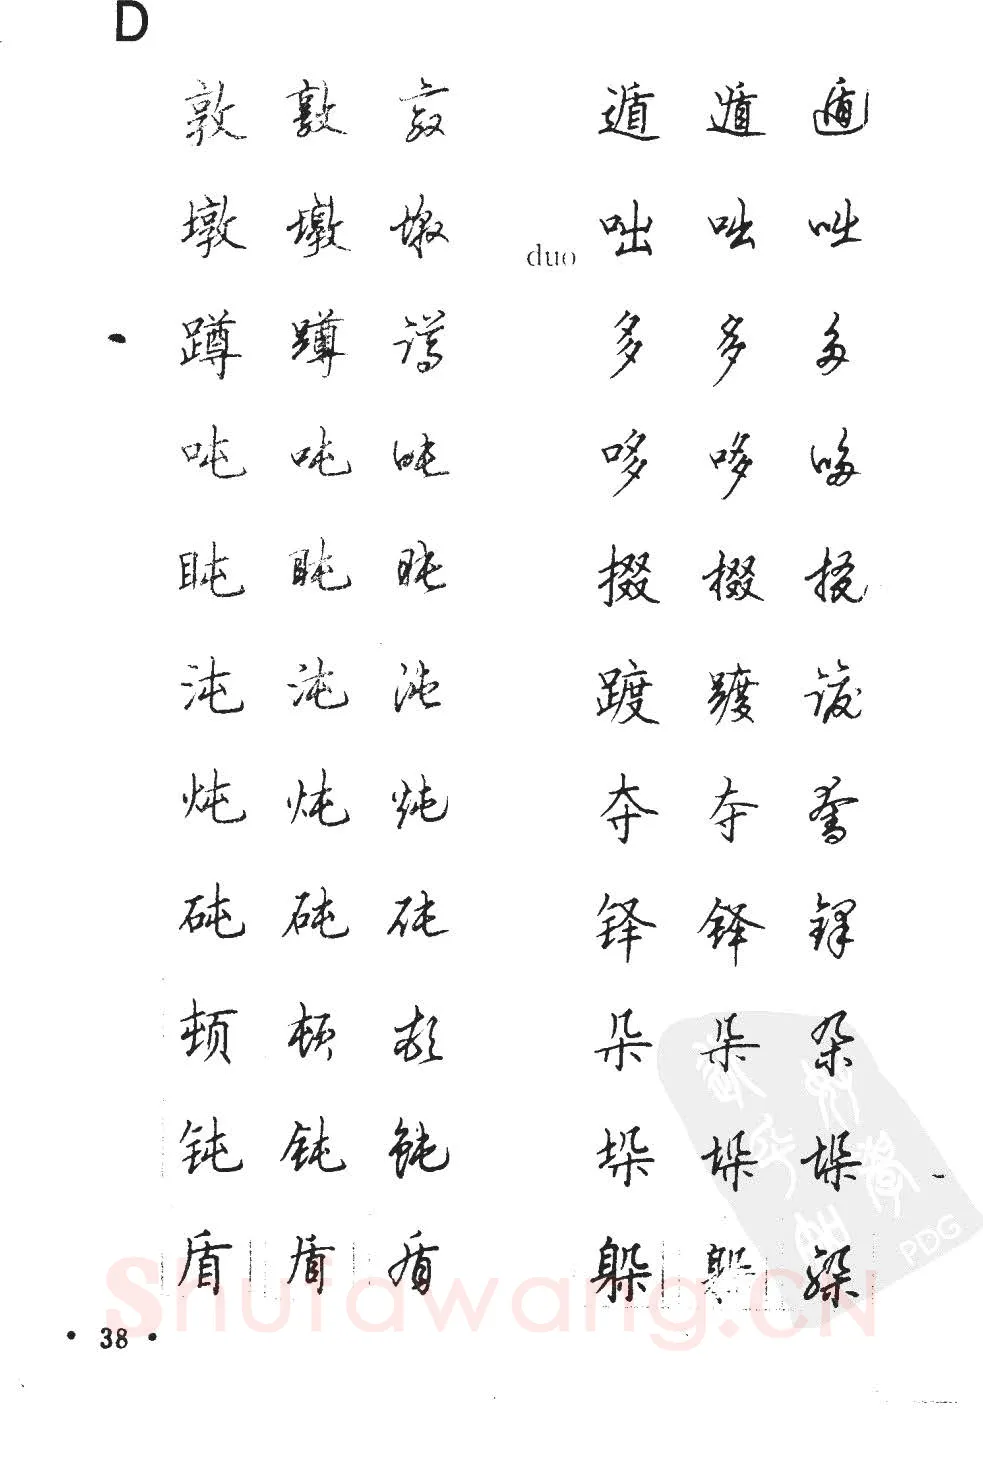 D
敦 敦 敦 遁 遁 遁
墩 墩 墩 duo 咄 咄 咄
蹲 蹲 蹲 多 多 多
吨 吨 吨 哆 哆 哆
盹 盹 盹 掇 掇 掇
沌 沌 沌 踱 踱 踱
炖 炖 炖 夺 夺 奪
砘 砘 砘 铎 铎 鐸
顿 顿 顿 朵 朵 朵
钝 钝 钝 垛 垛 垛
盾 盾 盾 躲 躲 躲
• 38 •
Shufawang.CN
PDG